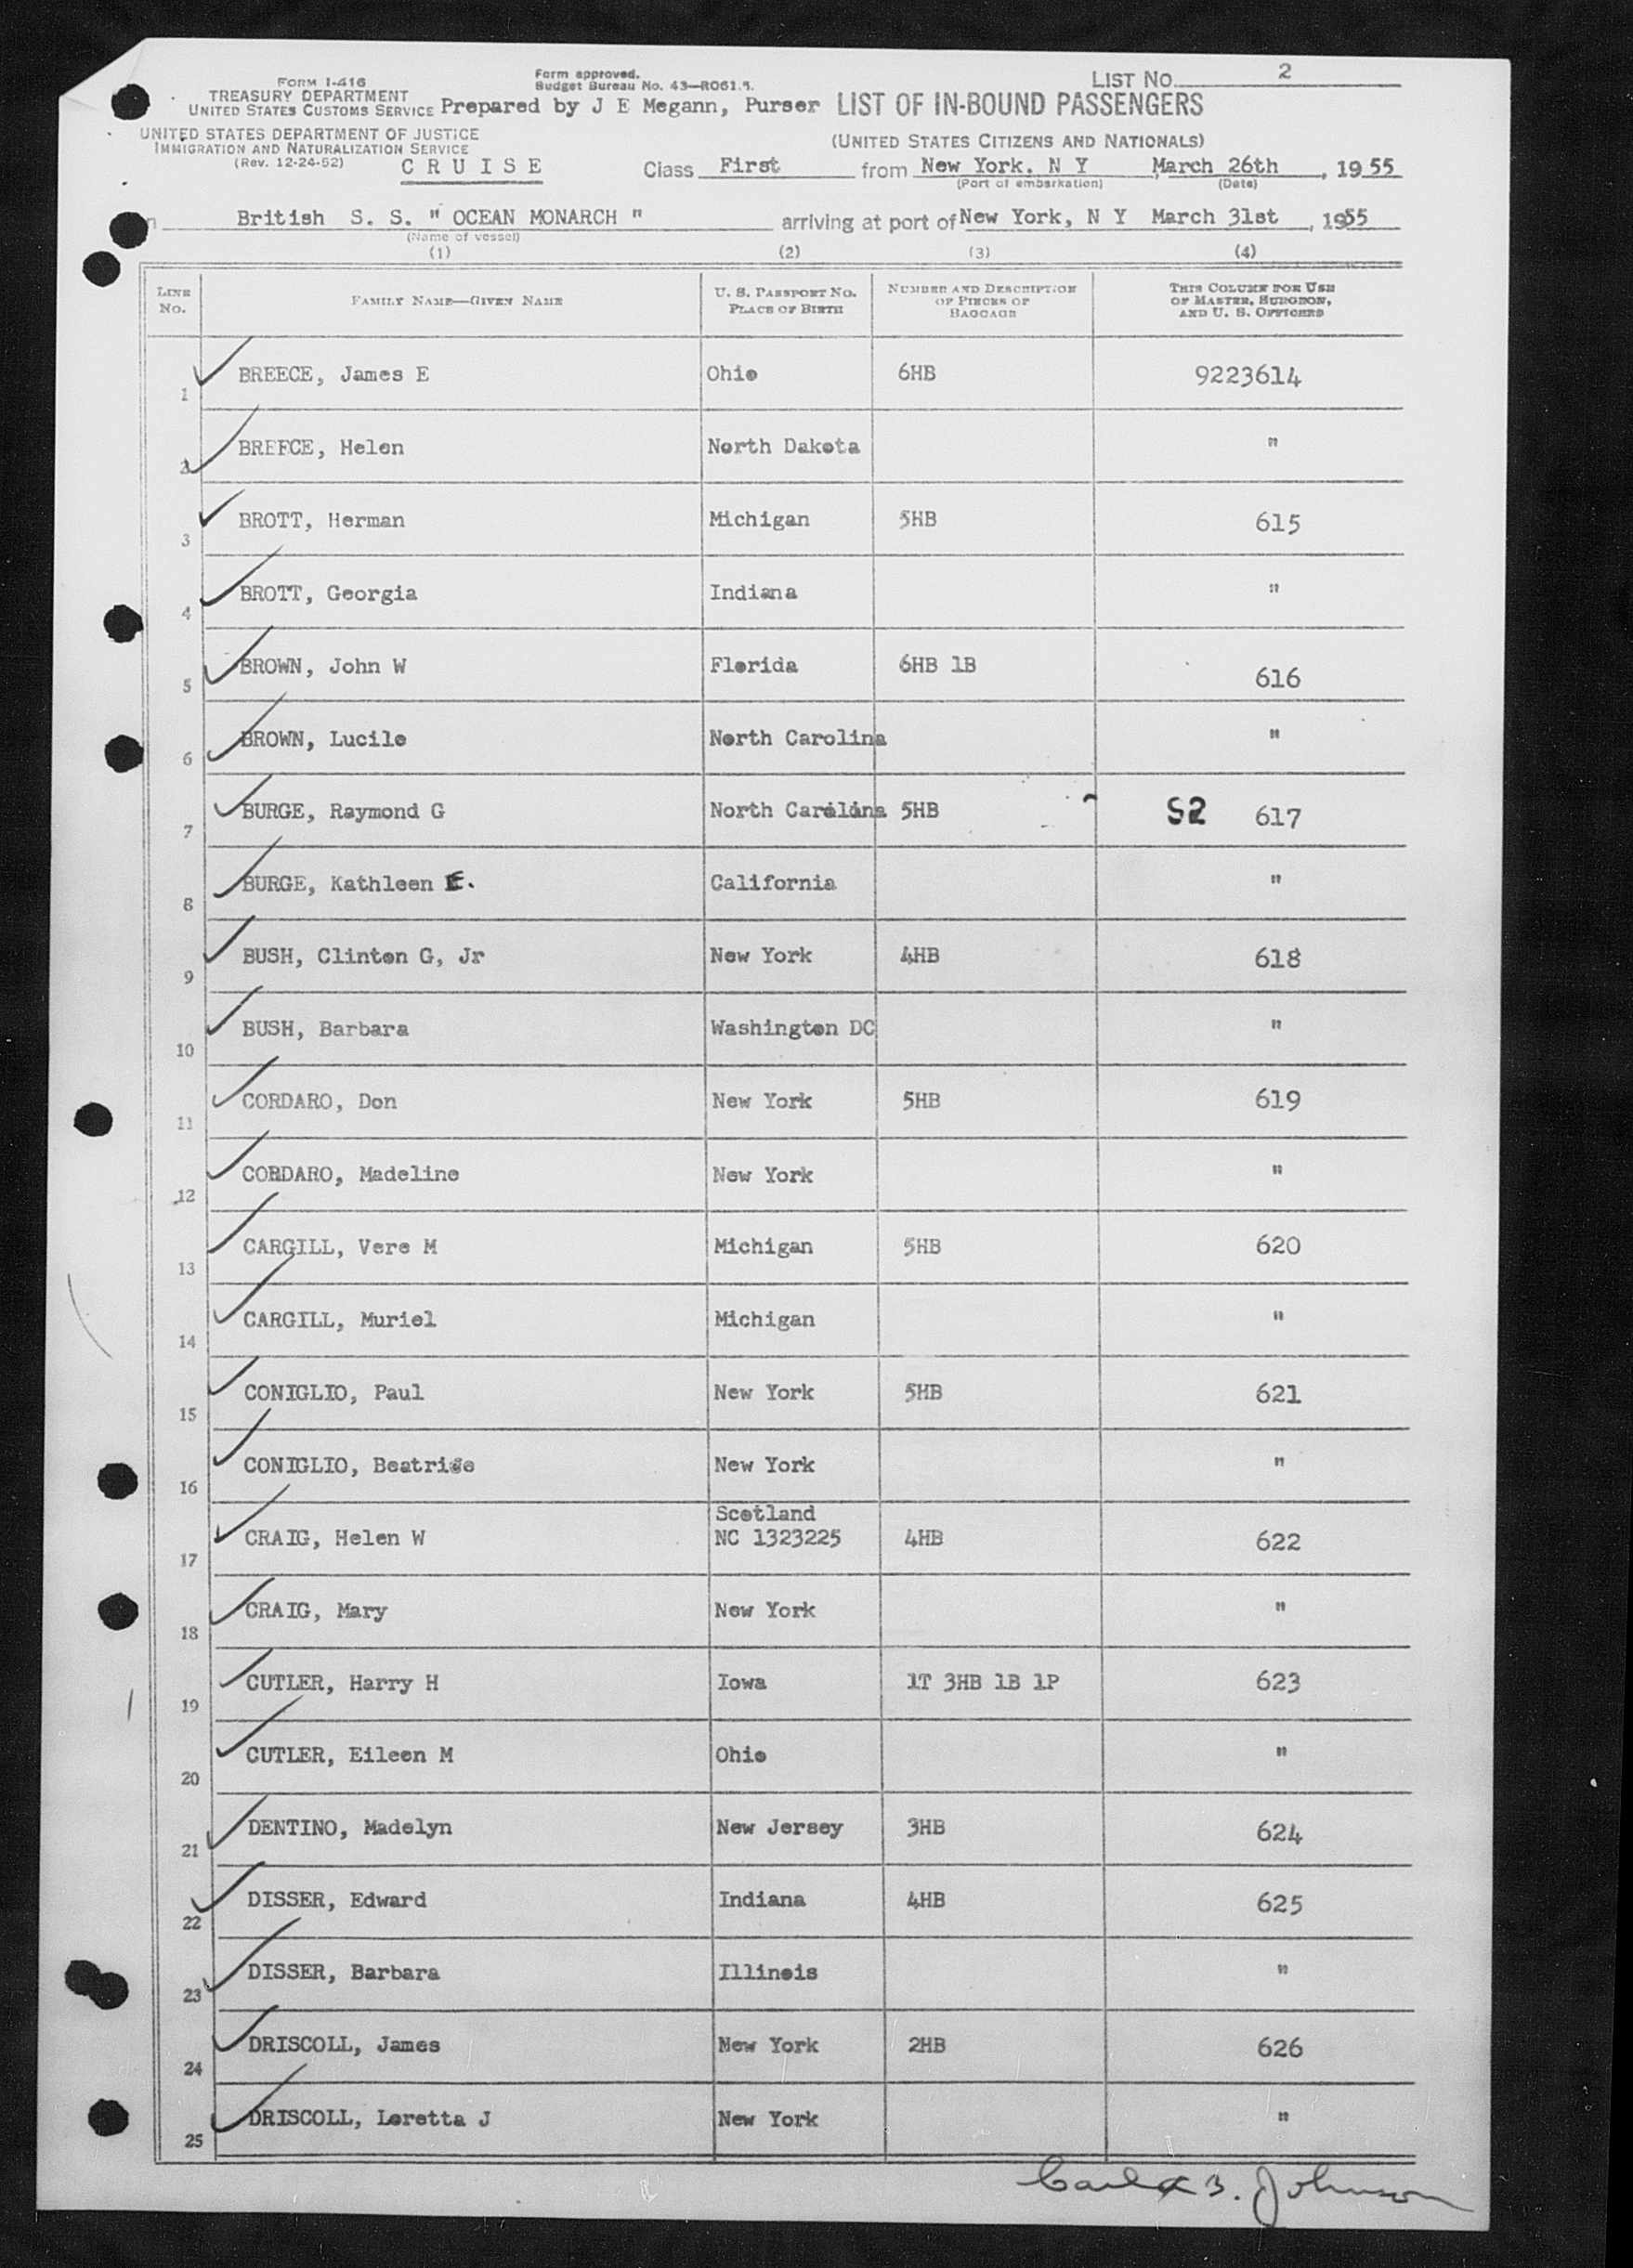 LIST No. 2
FORM I-416
TREASURY DEPARTMENT
UNITED STATES CUSTOMS SERVICE
Form approved.
Budget Bureau No. 43—R061.5.
Prepared by J E Megann, Purser
LIST OF IN-BOUND PASSENGERS
UNITED STATES DEPARTMENT OF JUSTICE
IMMIGRATION AND NATURALIZATION SERVICE
(Rev. 12-24-52)
(UNITED STATES CITIZENS AND NATIONALS)
CRUISE Class First from New York. N Y March 26th, 1955
(Port of embarkation) (Date)
British S. S. " OCEAN MONARCH " arriving at port of New York, N Y March 31st, 1955
(Name of vessel)
(1) (2) (3) (4)
LINE No. FAMILY NAME—GIVEN NAME U. S. PASSPORT NO. PLACE OF BIRTH NUMBER AND DESCRIPTION OF PIECES OF BAGGAGE THIS COLUMN FOR USE OF MASTER, SURGEON, AND U. S. OFFICERS
1 BREECE, James E Ohio 6HB 9223614
2 BREECE, Helen North Dakota "
3 BROTT, Herman Michigan 5HB 615
4 BROTT, Georgia Indiana "
5 BROWN, John W Florida 6HB 1B 616
6 BROWN, Lucile North Carolina "
7 BURGE, Raymond G North Carolina 5HB S2 617
8 BURGE, Kathleen E. California "
9 BUSH, Clinton G, Jr New York 4HB 618
10 BUSH, Barbara Washington DC "
11 CORDARO, Don New York 5HB 619
12 CORDARO, Madeline New York "
13 CARGILL, Vere M Michigan 5HB 620
14 CARGILL, Muriel Michigan "
15 CONIGLIO, Paul New York 5HB 621
16 CONIGLIO, Beatrice New York "
Scotland
17 CRAIG, Helen W NC 1323225 4HB 622
18 CRAIG, Mary New York "
19 CUTLER, Harry H Iowa 1T 3HB 1B 1P 623
20 CUTLER, Eileen M Ohio "
21 DENTINO, Madelyn New Jersey 3HB 624
22 DISSER, Edward Indiana 4HB 625
23 DISSER, Barbara Illinois "
24 DRISCOLL, James New York 2HB 626
25 DRISCOLL, Loretta J New York "
B. Johnson